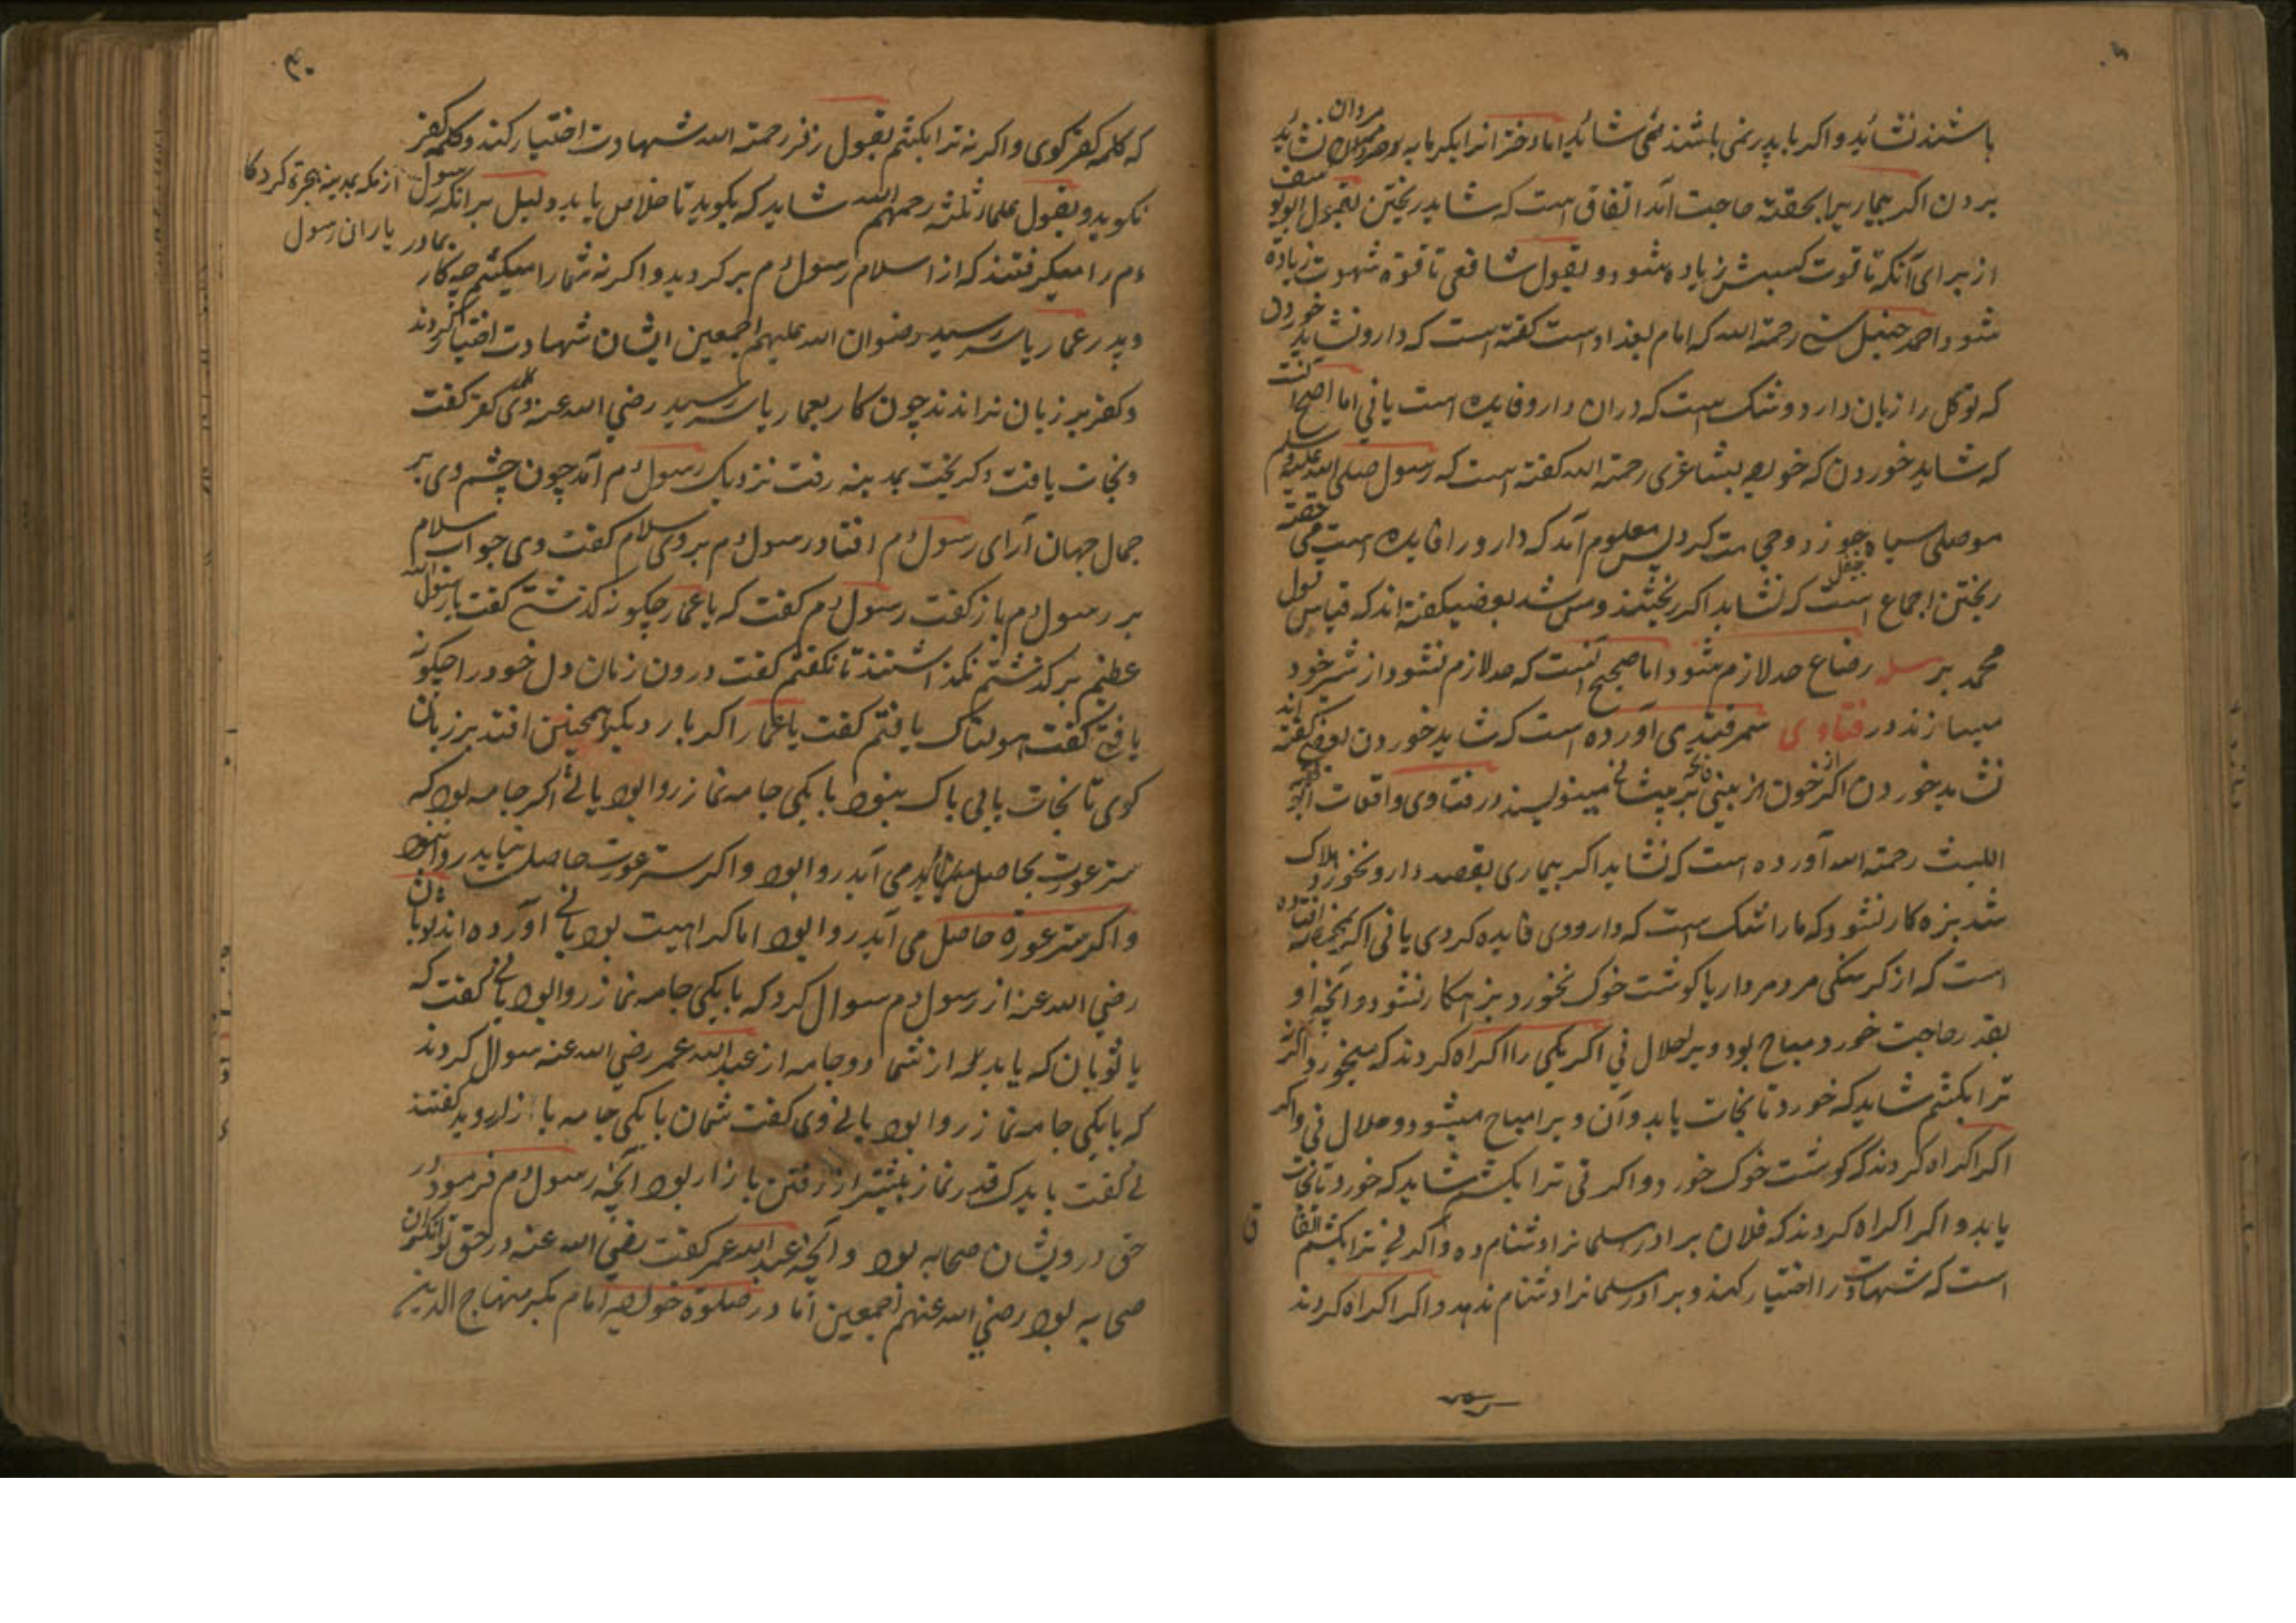 باشند نشاید و اکر با پدر نمی باشند نمی شاید اما دخترانرا بکرمابه مردان نشاید
بردن اکر بیماریرا بحقنه حاجت آمد اتفاق است که شاید ریختن بقول ابو یوسف
از برای آنکه تا قوت کسبش زیاده شود و بقول شافعی تا قوة شهوت زیادة
شود و احمد حنبل رحمة الله که امام بغداد است کفته است که دارو نشاید خوردن
که توکل را زیان دارد و شک است که دران دارو فایده است یا نی اما اصح آنست
که شاید خوردن که خواجه رحمة الله کفته است که رسول صلی الله علیه وسلم
معلوم آمد که دارو را فایده است حقنه می
ریختن اجماع است که نشاید اکر ریختند بعضی کفته اند که قیاس قول
محمد بر مسله رضاع حد لازم شود اما صحیح آنست که حد لازم نشود از شر خود
میسازند در فتاوی سمرقندی آورده است که شاید خوردن بعضی کفته اند
نشاید خوردن اکر از خون از بینی بر پیشانی مینویسند در فتاوی واقعات فقیه ابو
اللیث رحمة الله آورده است که نشاید اکر بیماری بقصد دارو نخورد و هلاک
شد بزه کار نشود که ما را شک است که داروی فایده کردی یا نی اکر
است که از کرسنکی مرد مردار یا کوشت خوک نخورد بزهکار نشود و آنچه او
بقدر حاجت خورد مباح بود و بر حلال نی اکر یکی را اکراه کردند که میخور و اکرنه
ترا بکشم شاید که خورد تا نجات یابد و آن ویرا مباح میشود و حلال نی و اکر
اکر اکراه کردند که کوشت خوک خورد و اکر نی ترا بکشم شاید که خورد تا نجات
یابد و اکر اکراه کردند که فلان برادر مسلمانرا دشنام ده و اکر نی ترا بکشم اتفاق
است که شهادت را اختیار کند و برادر مسلمانرا دشنام ندهد و اکر اکراه کردند
که کلمه کفر کوی و اکر نه ترا بکشم بقول زفر رحمة الله شهادت اختیار کند و کلمه کفر
نکوید و بقول علماء ثلثه رحمهم الله شاید که بکوید تا خلاص یابد دلیل برانکه رسول از مکه بمدینه هجرة کرد
یاران رسول
م را میکرفتند که از اسلام رسول م برکردید و اکر نه شما را میکشم چه کار
و پدر عمار یاسر رسید رضوان الله علیهم اجمعین ایشان شهادت اختیار کردند
و کفر بر زبان نراندند چون کار بعمار یاسر رسید رضی الله عنه وی کلمه کفر کفت
و نجات یافت و کریخت بمدینه رفت نزدیک رسول م آمد چون چشم وی بر
جمال جهان آرای رسول م افتاد رسول م بر وی سلام کفت وی جواب سلام
بر رسول م باز کفت رسول م کفت که یا عمار چکونه کذشتی کفت یا رسول الله
عظیم بر کذشتم نکذاشتند تا نکفتم کفت درون زمان دل خود را چکونه
یافتی کفت هولناک یافتم کفت یا عمار اکر بار دیکر همچنین افتد بر زبان
کوی تا نجات یابی باک نبود با یکی جامه نماز روا بود یا نی اکر جامه بود که
ستر عورت بحاصل می آید روا بود و اکر ستر عورت حاصل نیاید روا نبود
و اکر ستر عورة حاصل می آید روا بود اما کراهیت بود یا نی آورده اند ثوبان
رضی الله عنه از رسول م سوال کرد که با یکی جامه نماز روا بود یا نی کفت که
یا ثوبان که یابد همه از شما دو جامه از عبد الله عمر رضی الله عنه سوال کردند
که با یکی جامه نماز روا بود یا نی وی کفت شمایان با یکی جامه ببازار روید کفتند
نی کفت باید که قدر نماز بیشتر از رفتن بازار بود آنچه رسول م فرمود در
حق درویشان صحابه بود و آنچه عبد الله عمر کفت رضی الله عنه در حق توانکران
صحابه بود رضی الله عنهم اجمعین اما در صلوة خواجه امام مکبر منهاج الدین